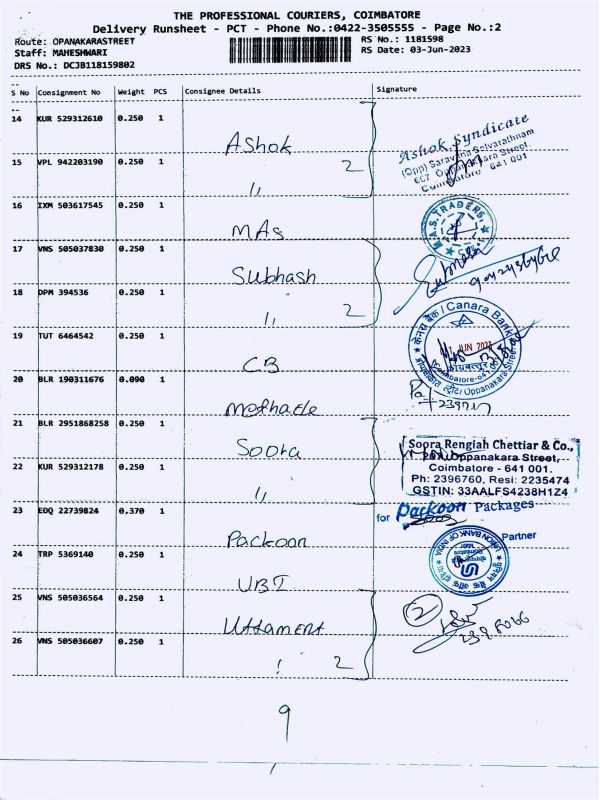 THE PROFESSIONAL COURIERS, COIMBATORE
Delivery Runsheet - PCT - Phone No.:0422-3505555 - Page No.:2
Route: OPANAKARASTREET
RS No.: 1181598
Staff: MAHESHWARI
RS Date: 03-Jun-2023
DRS No.: DCJB118159802
S No Consignment No Weight PCS Consignee Details Signature
14 KUR 529312610 0.250 1
Ashok
Ashok Syndicate
(Opp) Saravana Selvarathnam
667 Oppanakara Street
Coimbatore 641 001
15 VPL 942203190 0.250 1
" 2
16 IXM 503617545 0.250 1
MAS
M.A.S. TRADERS
17 VNS 505037830 0.250 1
Subhash
18 DPM 394536 0.250 1
" 2
केनरा बैंक / Canara Bank
JUN 2023
कोयम्बत्तूर
Coimbatore-641 001
Oppanakara Street
19 TUT 6464542 0.250 1
CB
20 BLR 190311676 0.090 1
21 BLR 2951868258 0.250 1
Soora
Soora Rengiah Chettiar & Co.,
Oppanakara Street,
Coimbatore - 641 001.
Ph: 2396760, Resi: 2235474
GSTIN: 33AALFS4238H1Z4
22 KUR 529312178 0.250 1
"
23 EDQ 22739824 0.370 1
Packoon
for Packoon Packages
Partner
24 TRP 5369140 0.250 1
UBI
UNION BANK OF INDIA
25 VNS 505036564 0.250 1
2
26 VNS 505036607 0.250 1
2
9